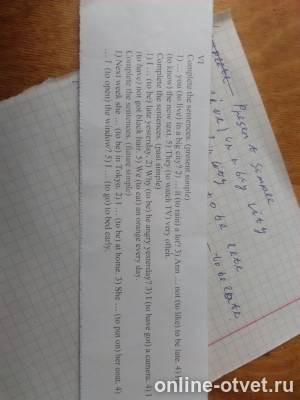 VI
Complete the sentences. (present simple)
1) … you (to live) in a big city? 2) … it (to rain) a lot? 3) Ann … not (to like) to be late. 4) I
(to know) the new text. 5) They (to watch TV) very often.
Complete the sentences. (past simple)
1) I … (to be) late yesterday. 2) Why (to be) he angry yesterday? 3) I (to have got) a camera. 4) I
(to have) not got black hair. 5) We (to eat) an orange every day.
Complete the sentences. (future simple)
1) Next week she … (to be) in Tokyo. 2) I … (to be) at home. 3) She … (to put on) her coat. 4)
… I (to open) the window? 5) I … (to go) to bed early.
Present Simple
in a big city
online-otvet.ru